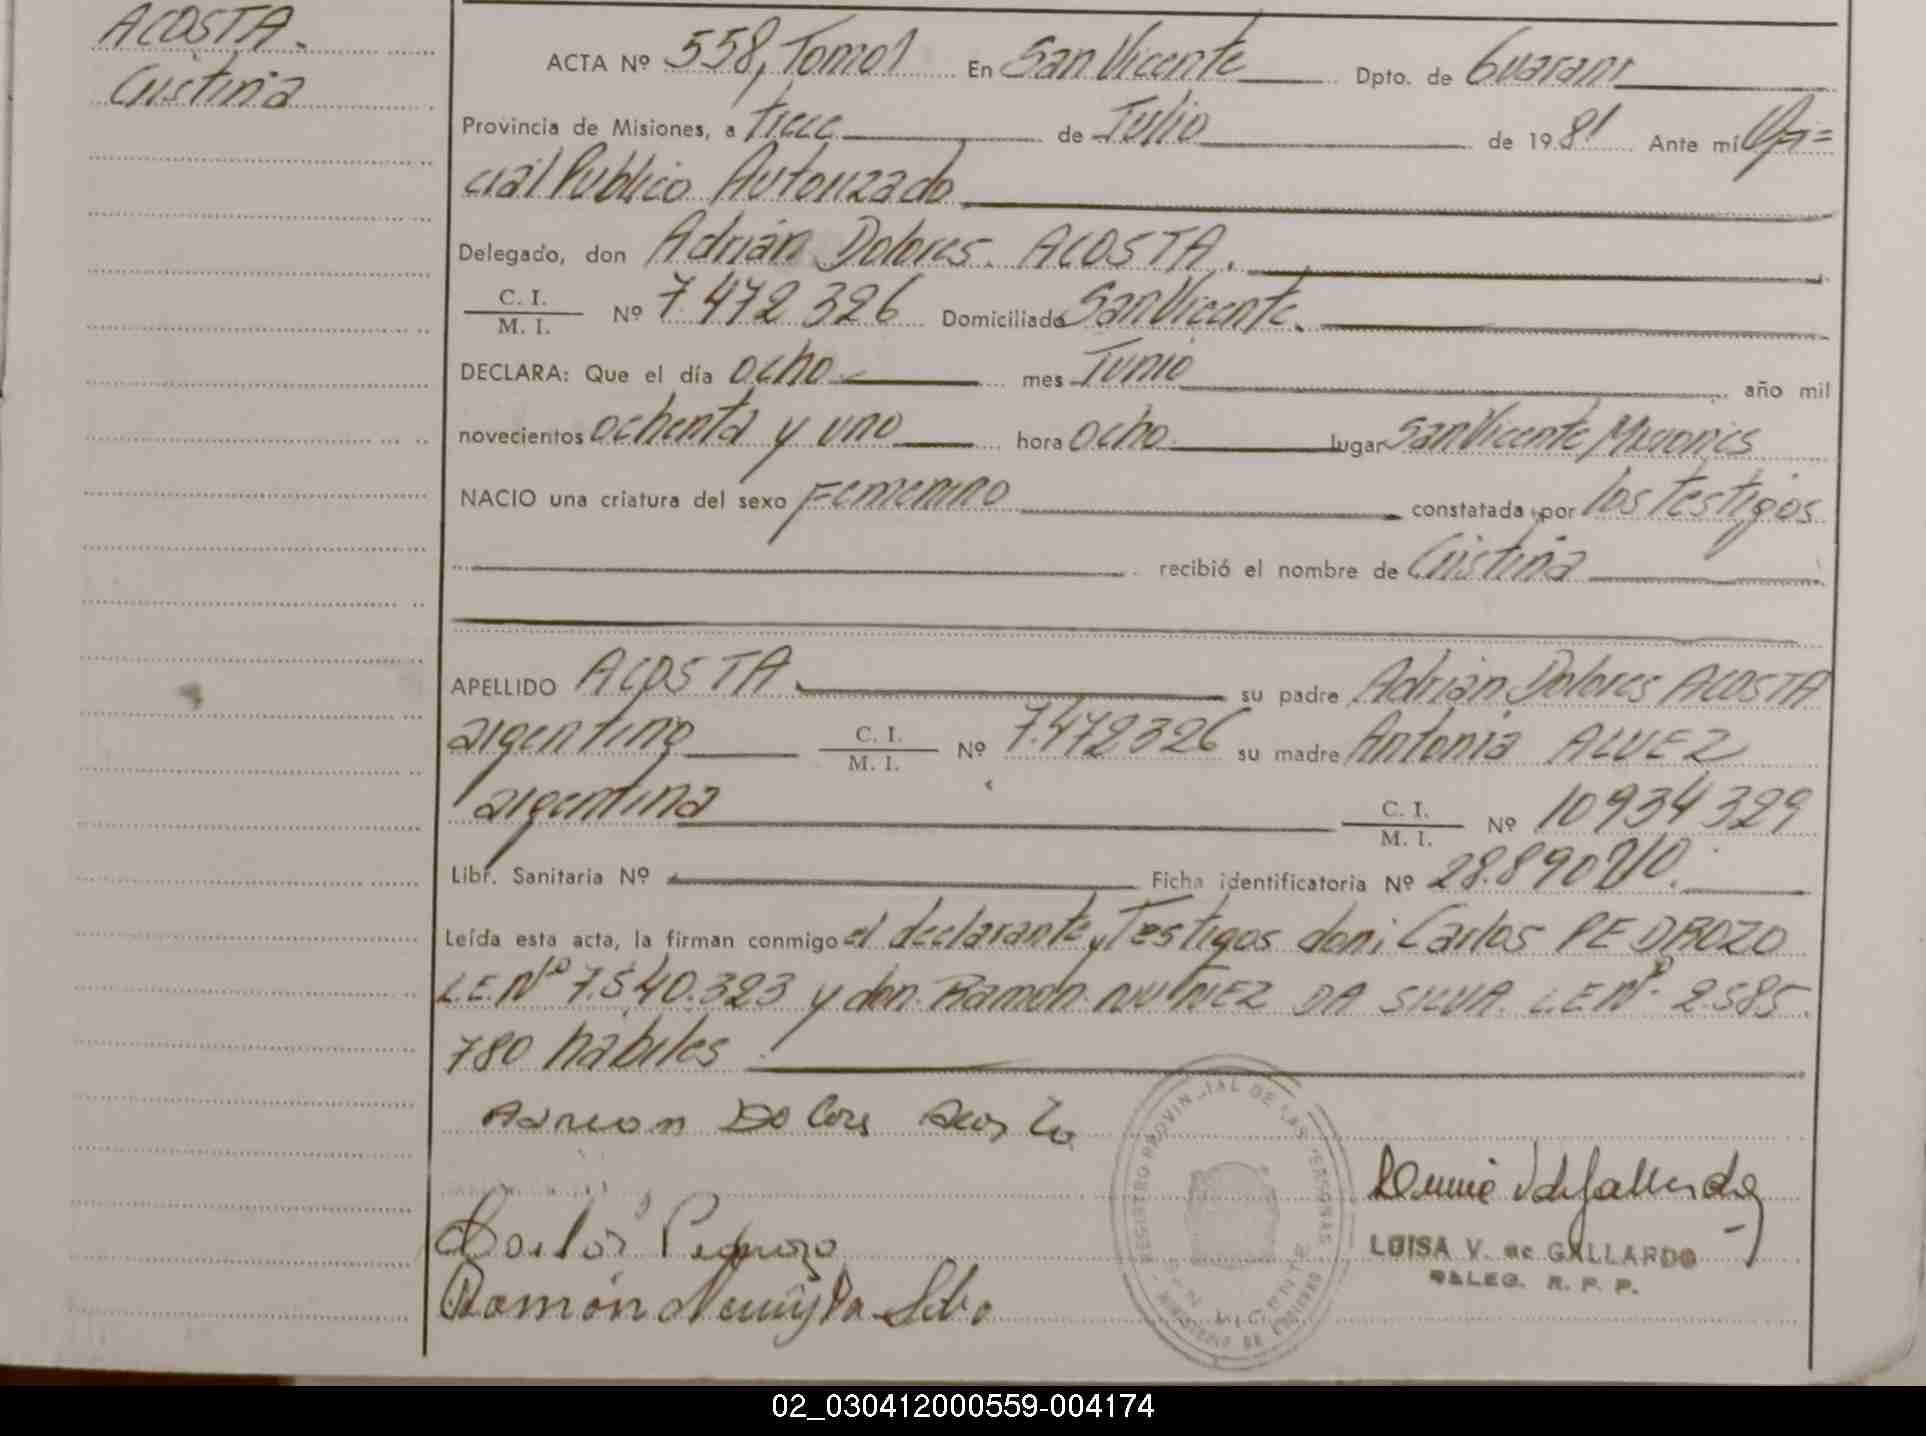 ACOSTA.
Cristina
ACTA Nº 558, Tomo 1 En San Vicente Dpto. de Guarani
Provincia de Misiones, a trece de Julio de 1981 Ante mí Ofi=
cial Publico Autorizado
Delegado, don Adrián Dolores. ACOSTA.
C. I.
M. I. Nº 7.472.326 Domiciliado San Vicente.
DECLARA: Que el día ocho mes Junio año mil
novecientos ochenta y uno hora ocho lugar San Vicente Misiones
NACIO una criatura del sexo Femenino constatada por los testigos
recibió el nombre de Cristina
APELLIDO ACOSTA su padre Adrián Dolores ACOSTA
argentino C. I.
M. I. Nº 7.472326 su madre Antonia ALVEZ
argentina C. I.
M. I. Nº 10934329
Libr. Sanitaria Nº Ficha identificatoria Nº 28.890210.
Leída esta acta, la firman conmigo el declarante y Testigos don: Carlos PEDROZO
L.E.Nº 7.540.323 y don. Ramón NUÑEZ DA SILVA. L.E.Nº 2.585.
780 habiles
Adrian Dolores Acosta
Carlos Pedrozo
Ramón Nuñez Da Silva
REGISTRO PROVINCIAL DE LAS PERSONAS
SAN VICENTE
MINISTERIO DE GOBIERNO
LUISA V. de GALLARDO
DELEG. R. P. P.
02_030412000559-004174